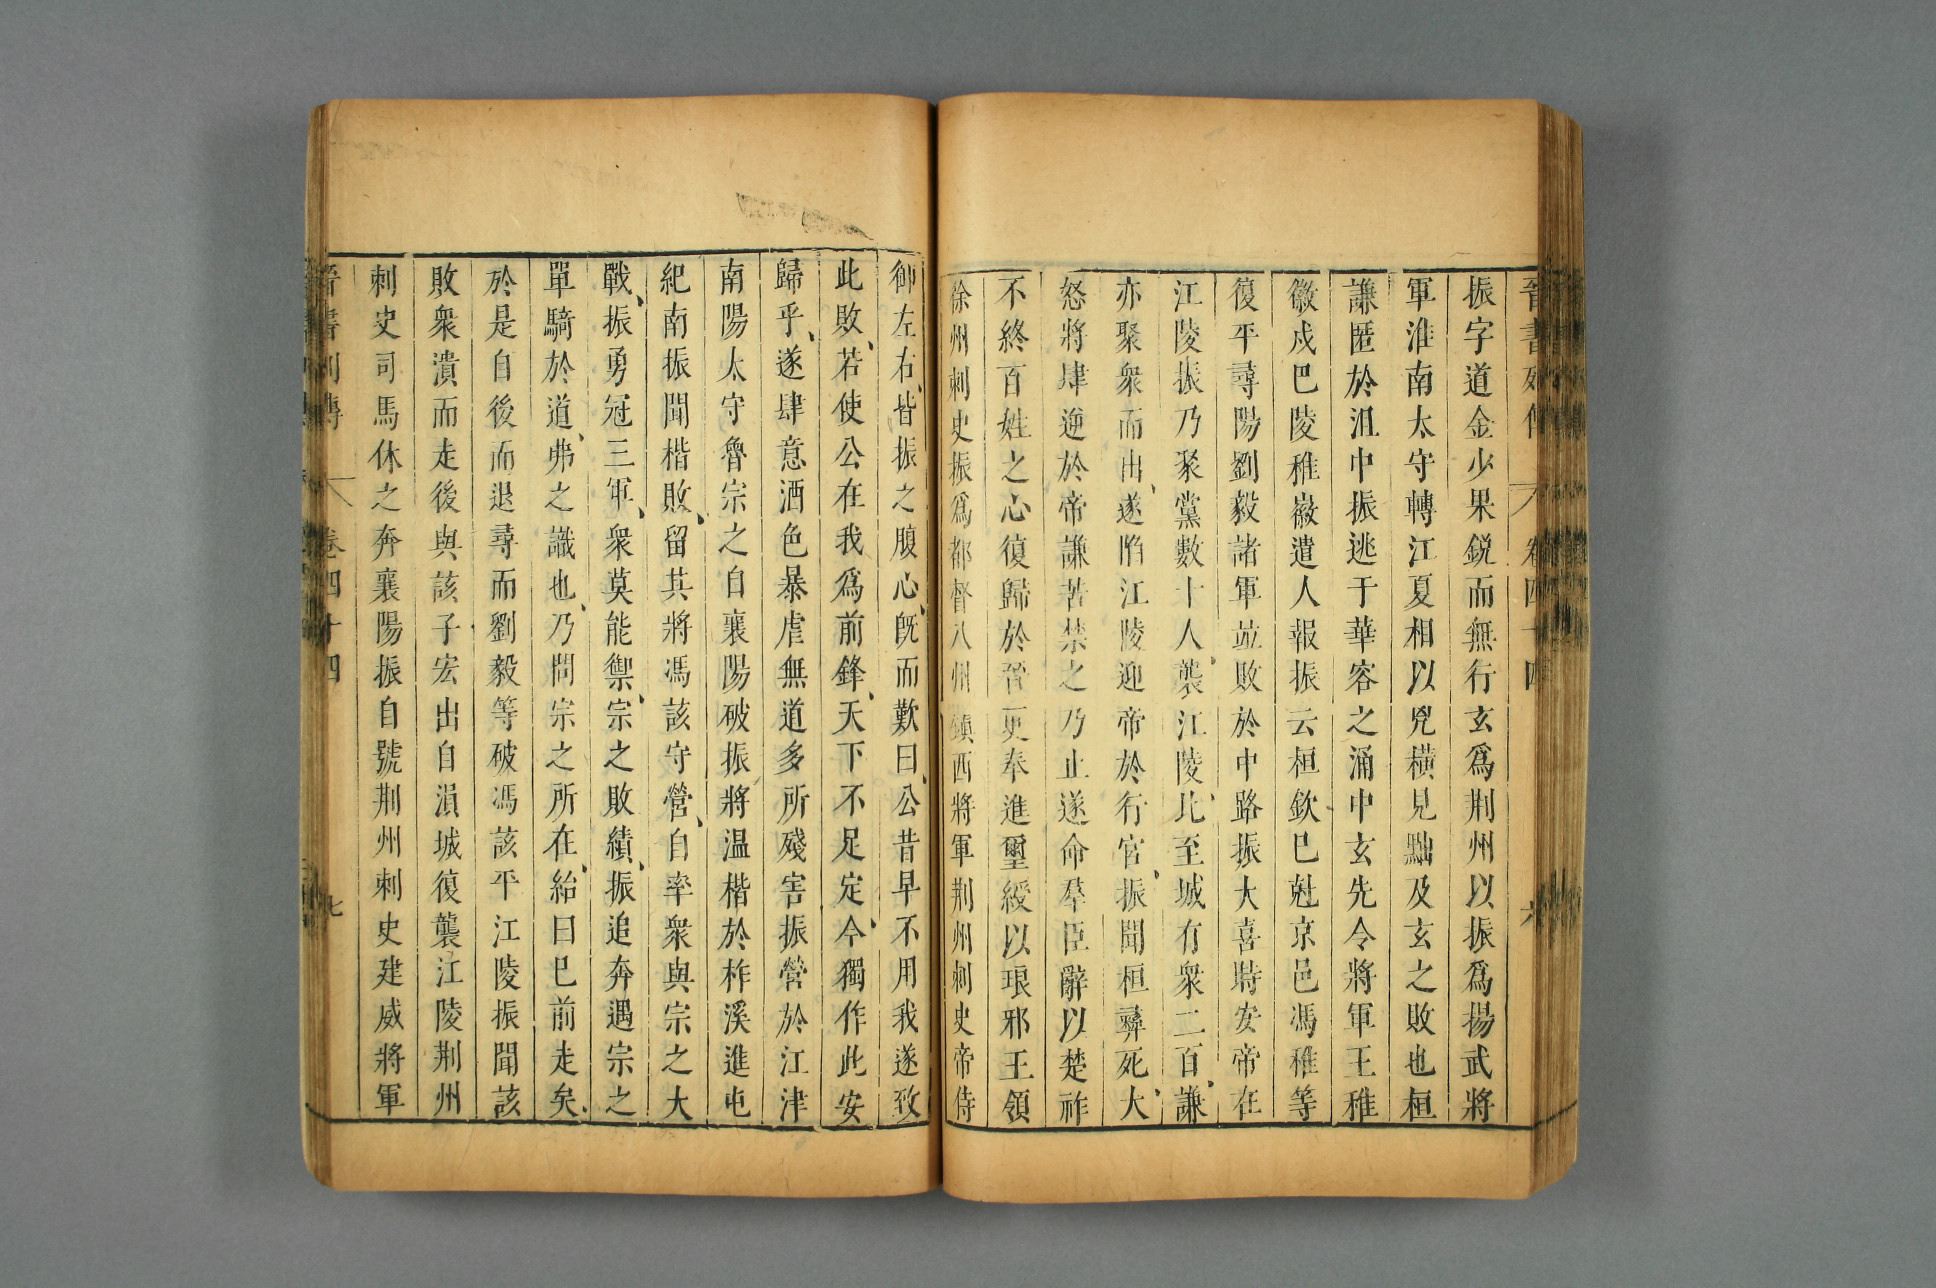 晉書列傳 卷四十四 六
振字道金少果鋭而無行玄爲荆州以振爲揚武將
軍淮南太守轉江夏相以兇橫見黜及玄之敗也桓
謙匿於沮中振逃于華容之涌中玄先令將軍王稚
徽戍巴陵稚徽遣人報振云桓欽巳尅京邑馮稚等
復平尋陽劉毅諸軍並敗於中路振大喜時安帝在
江陵振乃聚黨數十人襲江陵比至城有衆二百謙
亦聚衆而出遂陷江陵迎帝於行宫振聞桓昪死大
怒將肆逆於帝謙苦禁之乃止遂命羣臣辭以楚祚
不終百姓之心復歸於晉更奉進璽綬以琅邪王領
徐州刺史振爲都督八州鎮西將軍荆州刺史帝侍
御左右皆振之腹心旣而歎曰公昔早不用我遂致
此敗若使公在我爲前鋒天下不足定今獨作此安
歸乎遂肆意酒色暴虐無道多所殘害振營於江津
南陽太守魯宗之自襄陽破振將温楷於柞溪進屯
紀南振聞楷敗留其將馮該守營自率衆與宗之大
戰振勇冠三軍衆莫能禦宗之敗績振追奔遇宗之
單騎於道弗之識也乃問宗之所在紿曰巳前走矣
於是自後而退尋而劉毅等破馮該平江陵振聞該
敗衆潰而走後與該子宏出自溳城復襲江陵荆州
刺史司馬休之奔襄陽振自號荆州刺史建威將軍
晉書列傳 卷四十四 七